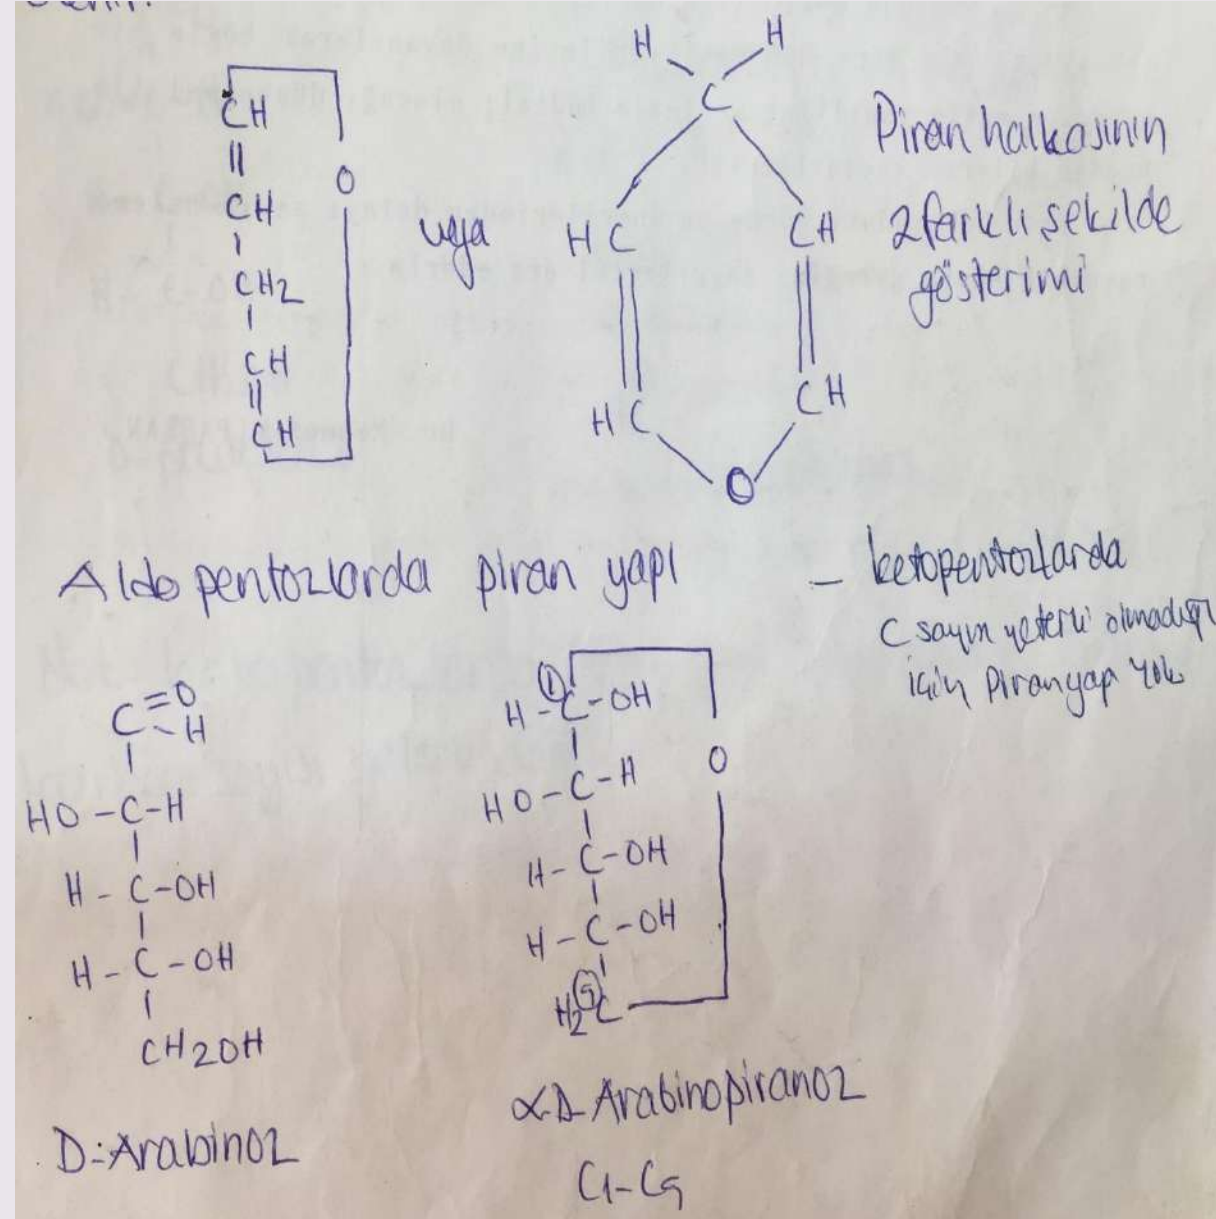 CH
||
CH
|
CH2
|
CH
||
CH
O
veya
H H
C
HC CH
HC CH
O
Piran halkasının
2 farklı şekilde
gösterimi
Aldopentozlarda piran yapı
- ketopentozlarda
C sayısı yeterli olmadığı
için Piran yapı yok
C=O
-H
|
HO-C-H
|
H-C-OH
|
H-C-OH
|
CH2OH
D-Arabinoz
①
H-C-OH
|
HO-C-H
|
H-C-OH
|
H-C-OH
|
⑤
H2C
O
α-D-Arabinopiranoz
C1-C5